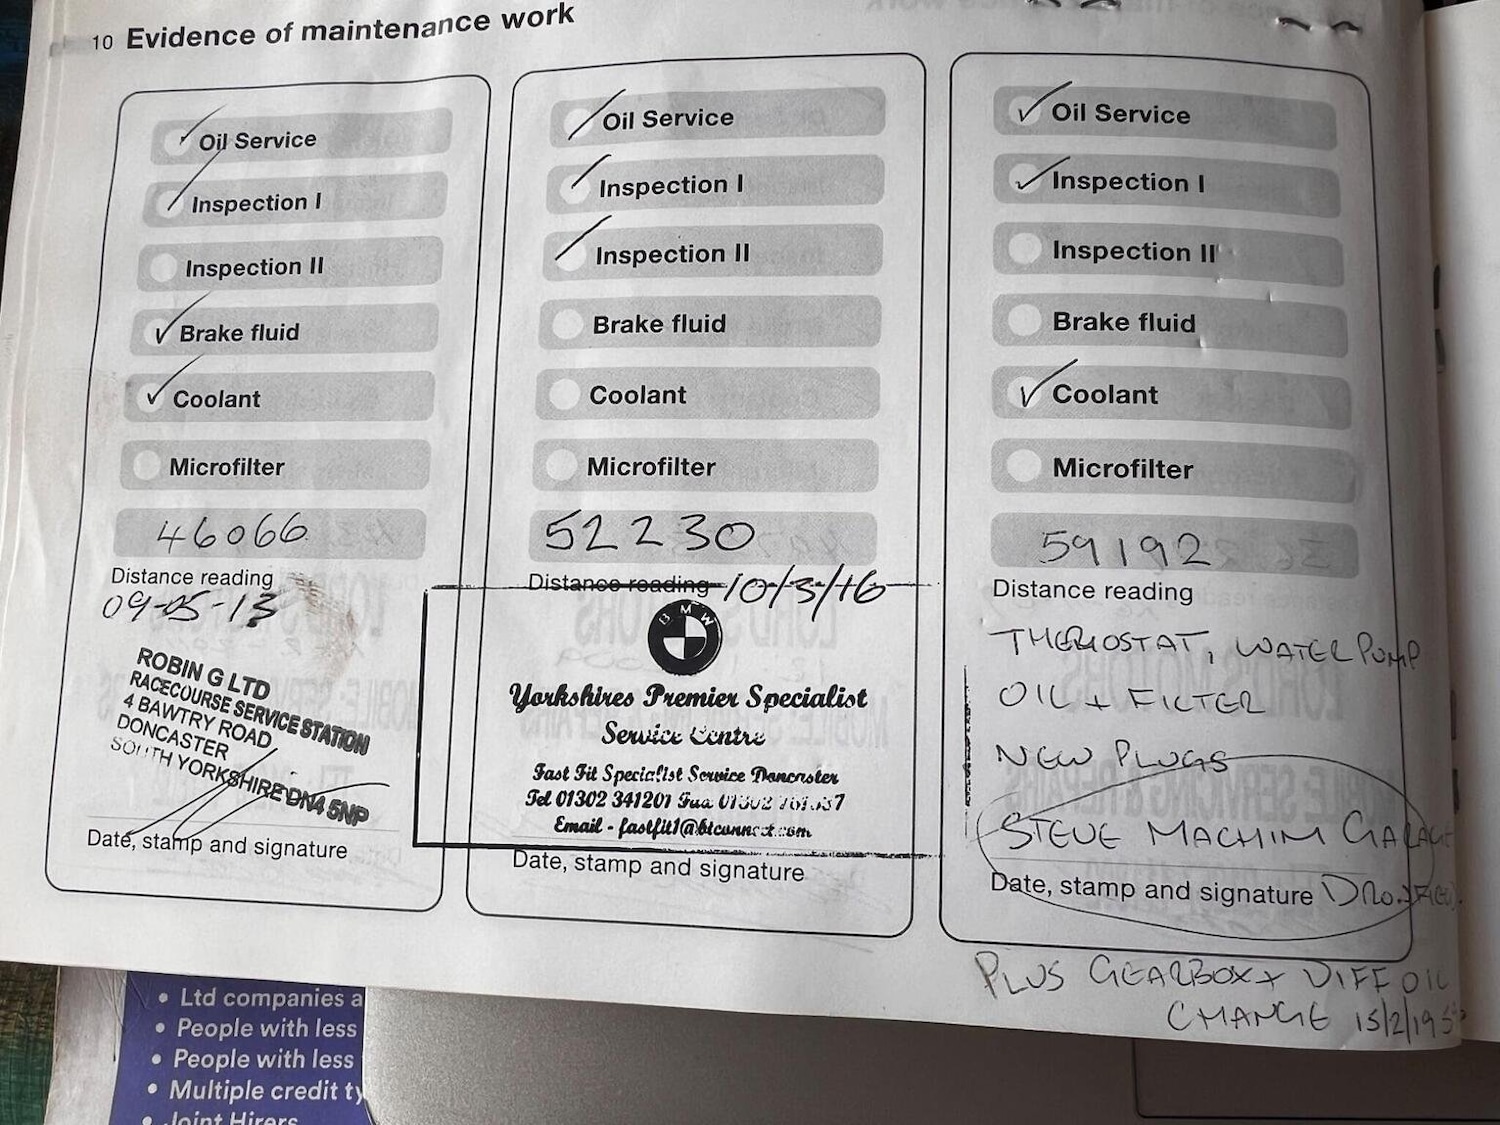 10 Evidence of maintenance work
Oil Service
Inspection I
Inspection II
Brake fluid
Coolant
Microfilter
46066
Distance reading
09-05-13
ROBIN G LTD
RACECOURSE SERVICE STATION
4 BAWTRY ROAD
DONCASTER
SOUTH YORKSHIRE DN4 5NP
Date, stamp and signature
Oil Service
Inspection I
Inspection II
Brake fluid
Coolant
Microfilter
52230
Distance reading 10/3/16
BMW
Yorkshires Premier Specialist
Service Centre
Fast Fit Specialist Service Doncaster
Tel 01302 341201 Fax 01302
Email - fastfit1@btconnect.com
Date, stamp and signature
Oil Service
Inspection I
Inspection II
Brake fluid
Coolant
Microfilter
59192
Distance reading
THERMOSTAT, WATER PUMP
OIL + FILTER
NEW PLUGS
STEVE MACHIM GARAGE
Date, stamp and signature
PLUS GEARBOX + DIFF OIL
CHANGE 15/2/19
• Ltd companies a
• People with less
• People with less
• Multiple credit ty
• Joint Hirers